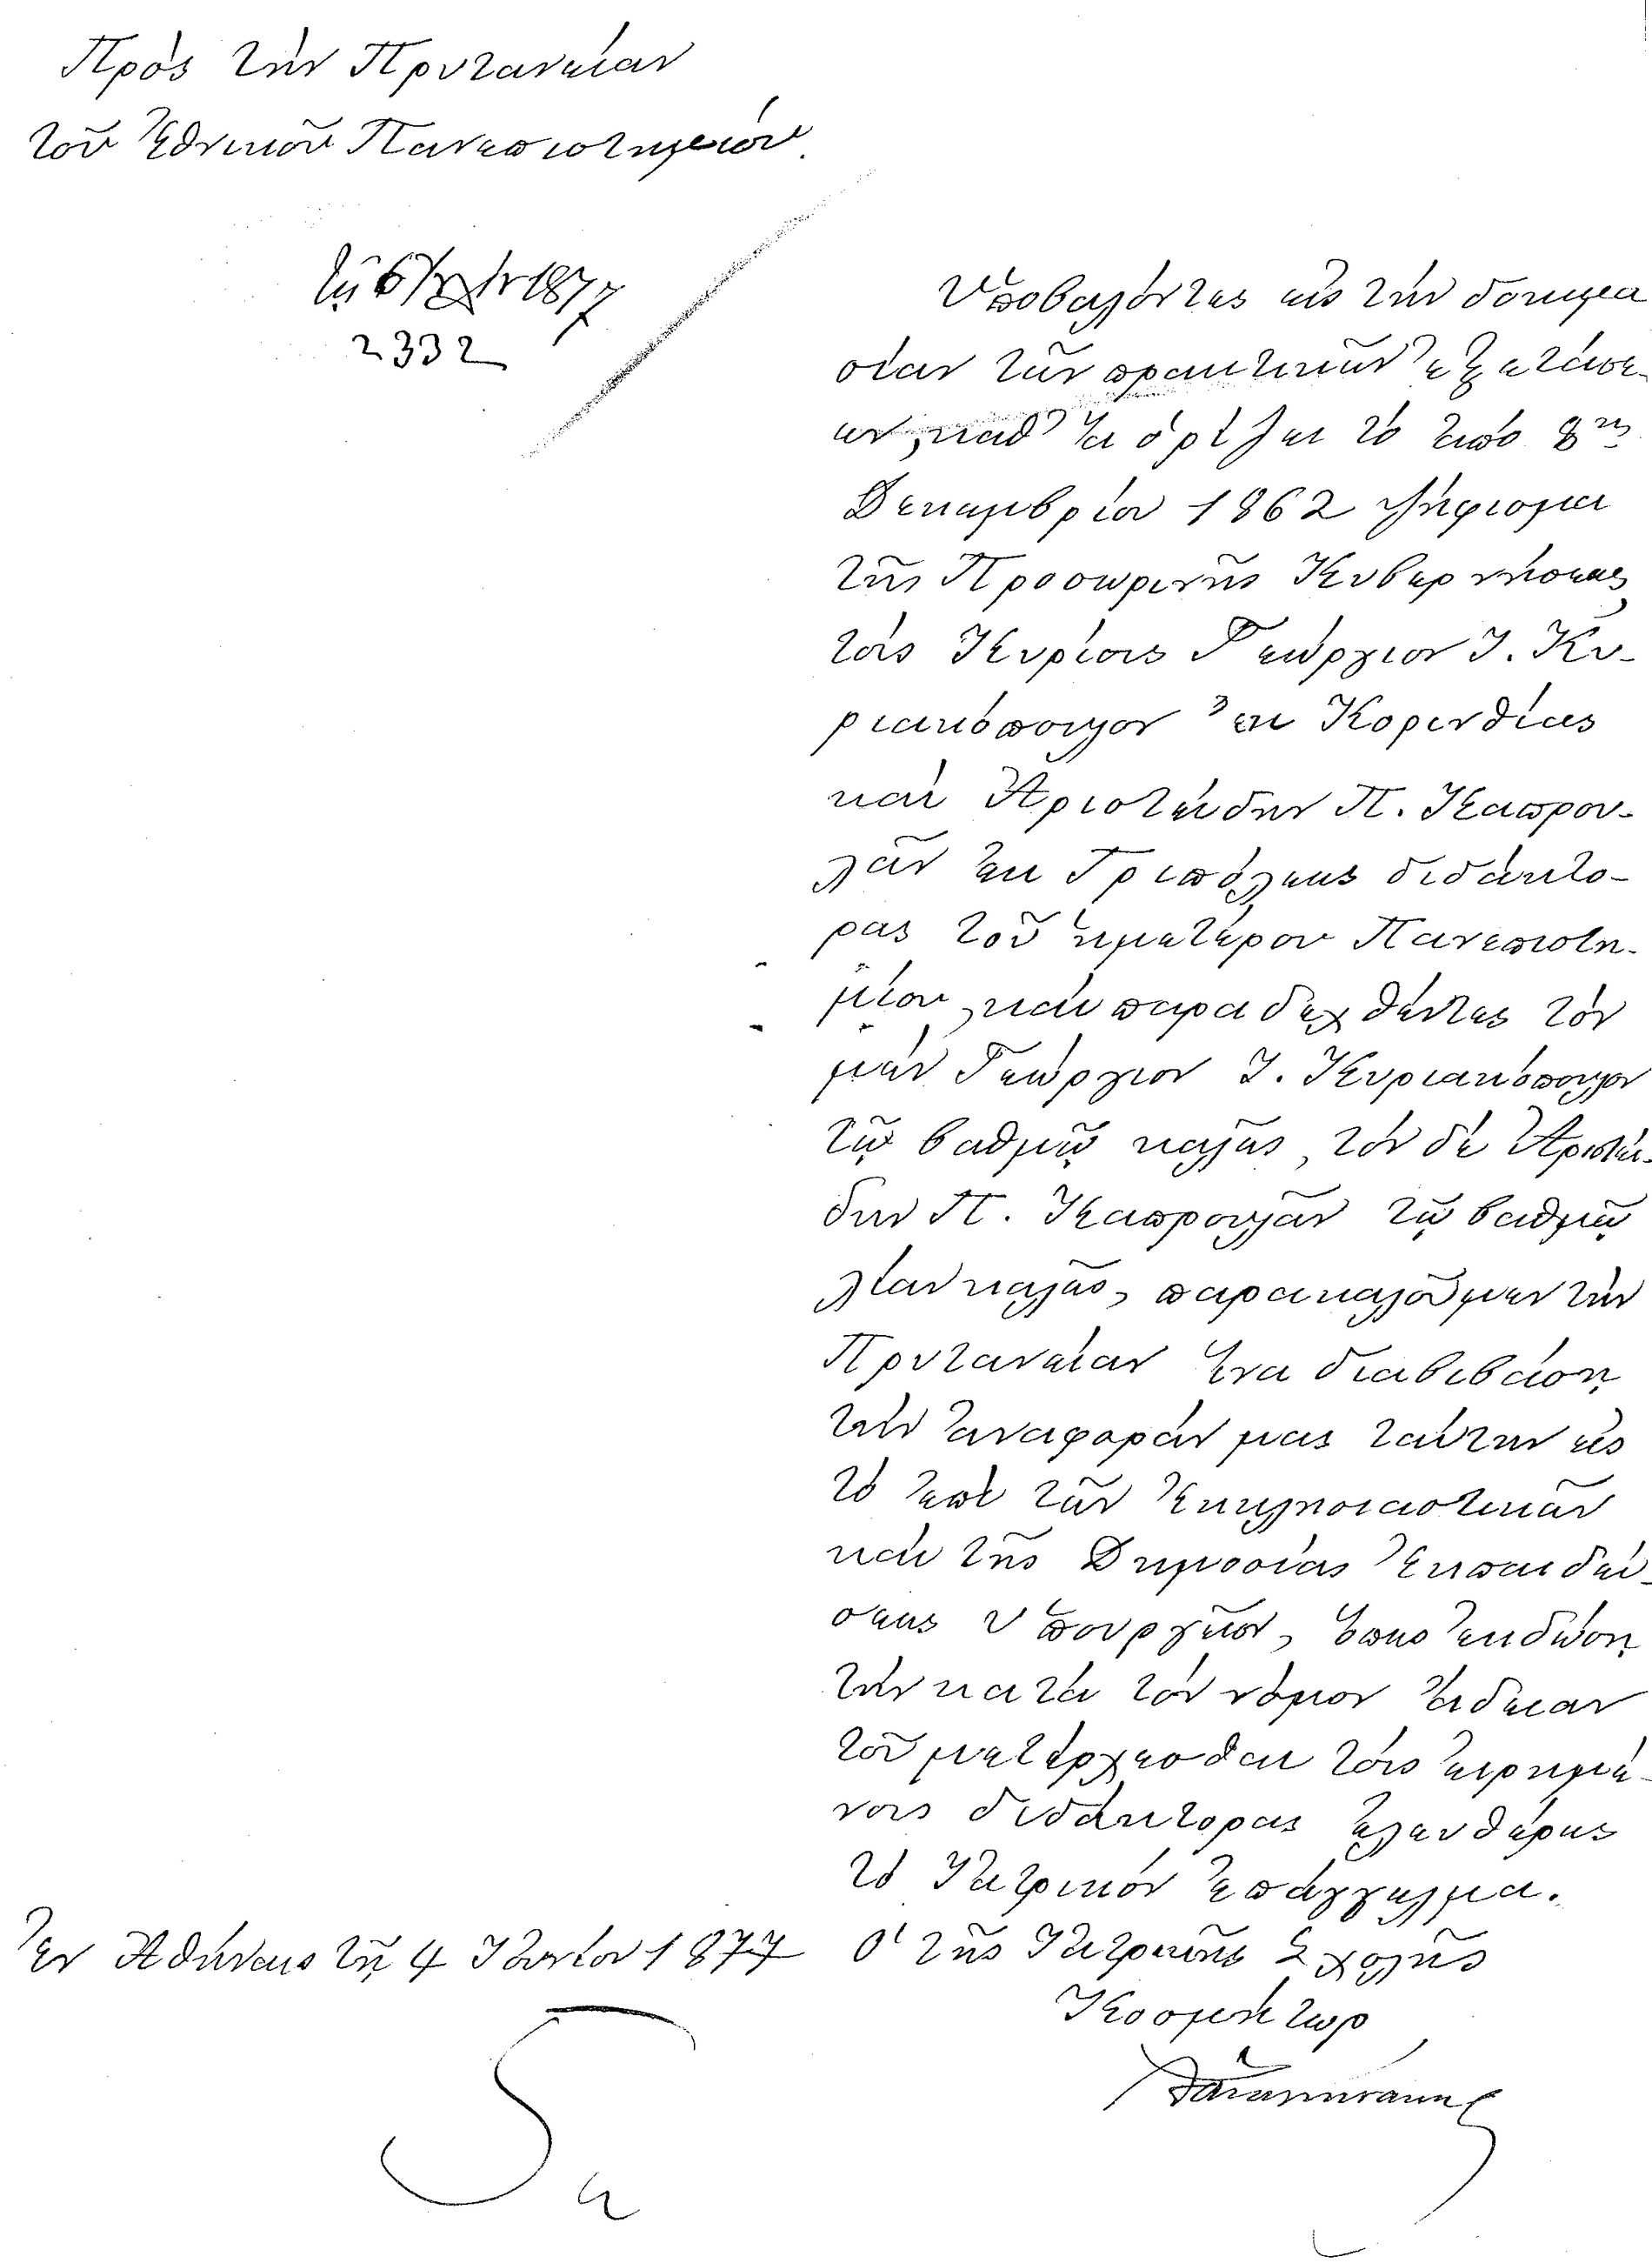 Πρὸς τὴν Πρυτανείαν
τοῦ Ἐθνικοῦ Πανεπιστημείου.
τῇ 6 1877
2332
Ὑποβαλόντες εἰς τὴν δοκιμα
σίαν τῶν πρακτικῶν ἐξετάσε-
ων, καθ' ἃ ὁρίζει τὸ ἀπὸ 8ης
Δεκεμβρίου 1862 ψήφισμα
τῆς Προσωρινῆς Κυβερνήσεως
τοὺς Κυρίους Γεώργιον Ι. Κυ-
ριακόπουλον ἐκ Κορινθίας
καὶ Ἀριστείδην Π. Καπρου-
λᾶν ἐκ Τριπόλεως διδάκτο-
ρας τοῦ ἡμετέρου Πανεπιστη-
μίου, καὶ παραδεχθέντες τὸν
μὲν Γεώργιον Ι. Κυριακόπουλον
τῷ βαθμῷ καλῶς, τὸν δὲ Ἀριστεί-
δην Π. Καπρουλᾶν τῷ βαθμῷ
λίαν καλῶς, παρακαλοῦμεν τὴν
Πρυτανείαν ἵνα διαβιβάσῃ
τὴν ἀναφοράν μας ταύτην εἰς
τὸ ἐπὶ τῶν Ἐκκλησιαστικῶν
καὶ τῆς Δημοσίας Ἐκπαιδεύ-
σεως Ὑπουργεῖον, ὅπως ἐκδώσῃ
τὴν κατὰ τὸν νόμον ἄδειαν
τοῦ μετέρχεσθαι τοὺς εἰρημέ-
νους διδάκτορας ἐλευθέρως
τὸ Ἰατρικὸν ἐπάγγελμα.
Ἐν Ἀθήναις τῇ 4 Ἰουνίου 1877
Ὁ τῆς Ἰατρικῆς Σχολῆς
Κοσμήτωρ